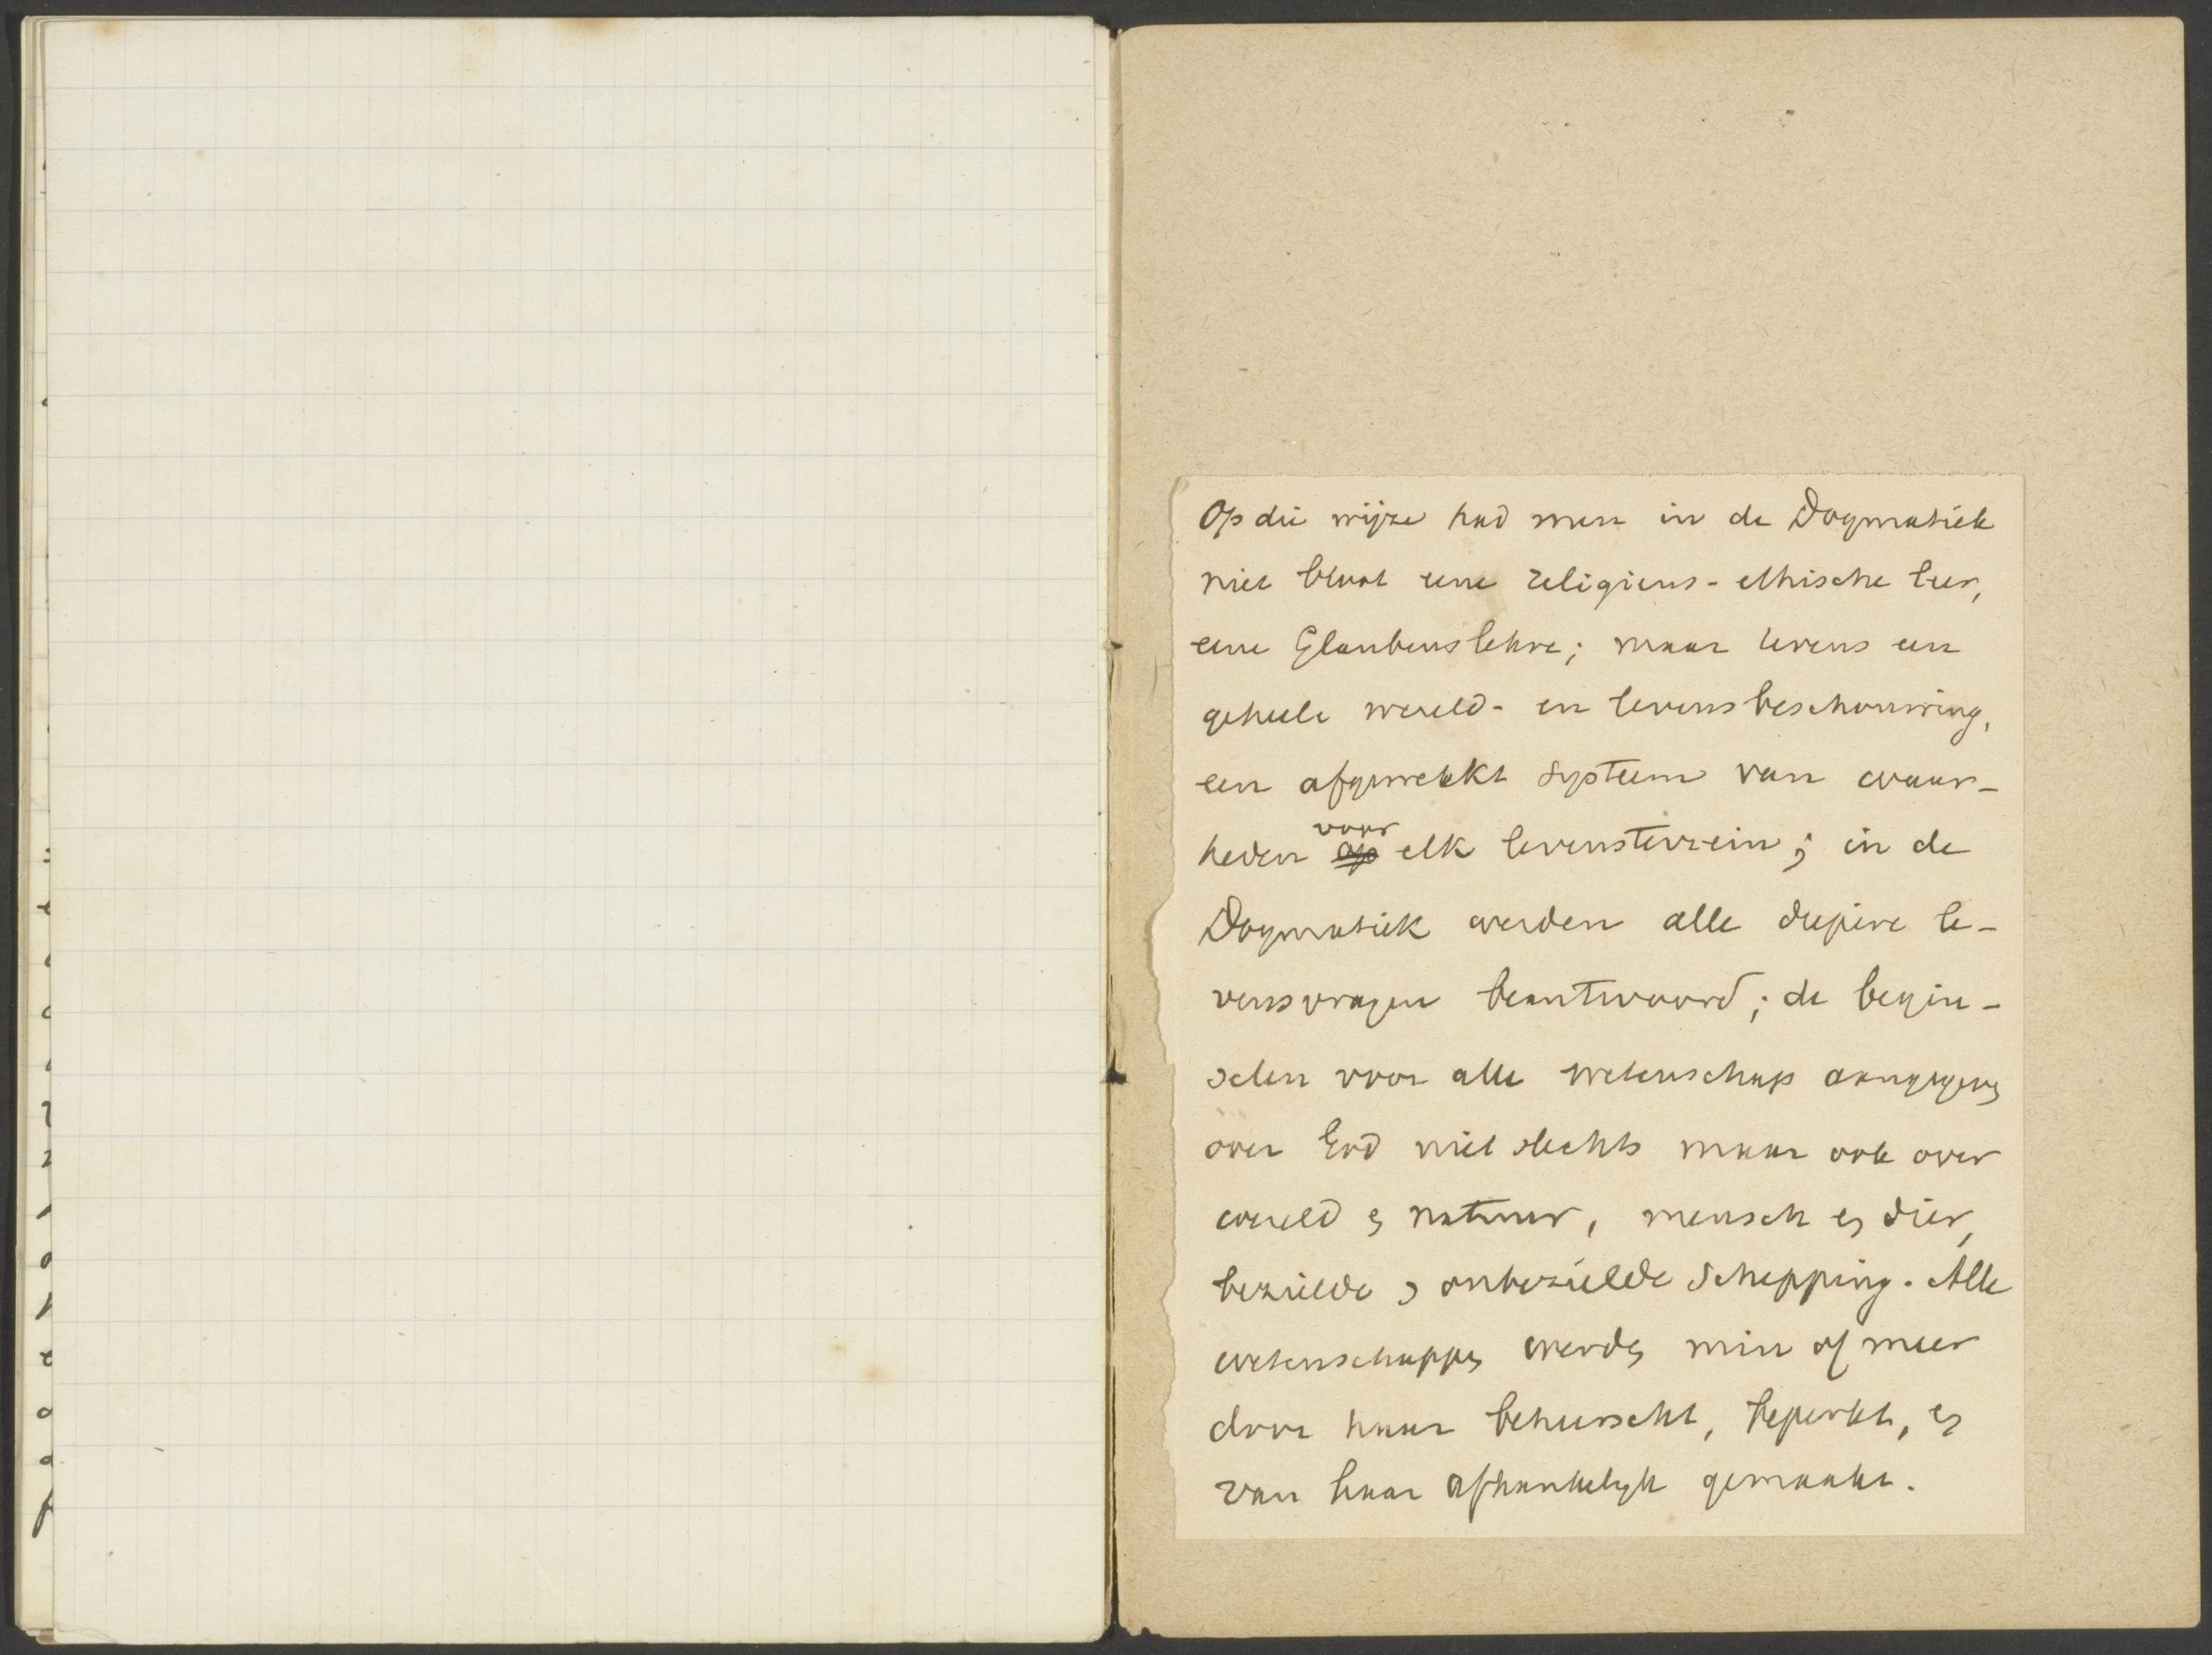 Op die wijze had men in de Dogmatiek
niet bloot eene religieus-ethische leer,
eene Glaubenslehre; maar tevens een
geheele wereld- en levensbeschouwing,
een afgewerkt systeem van waar-
heden op voor elk levensterrein; in de
Dogmatiek werden alle diepere le-
vensvragen beantwoord; de begin-
selen voor alle wetenschap aangegeven
over God niet slechts maar ook over
wereld en natuur, mensch en dier,
bezielde en onbezielde schepping. Alle
wetenschappen werden min of meer
door haar beheerscht, beperkt, en
van haar afhankelijk gemaakt.